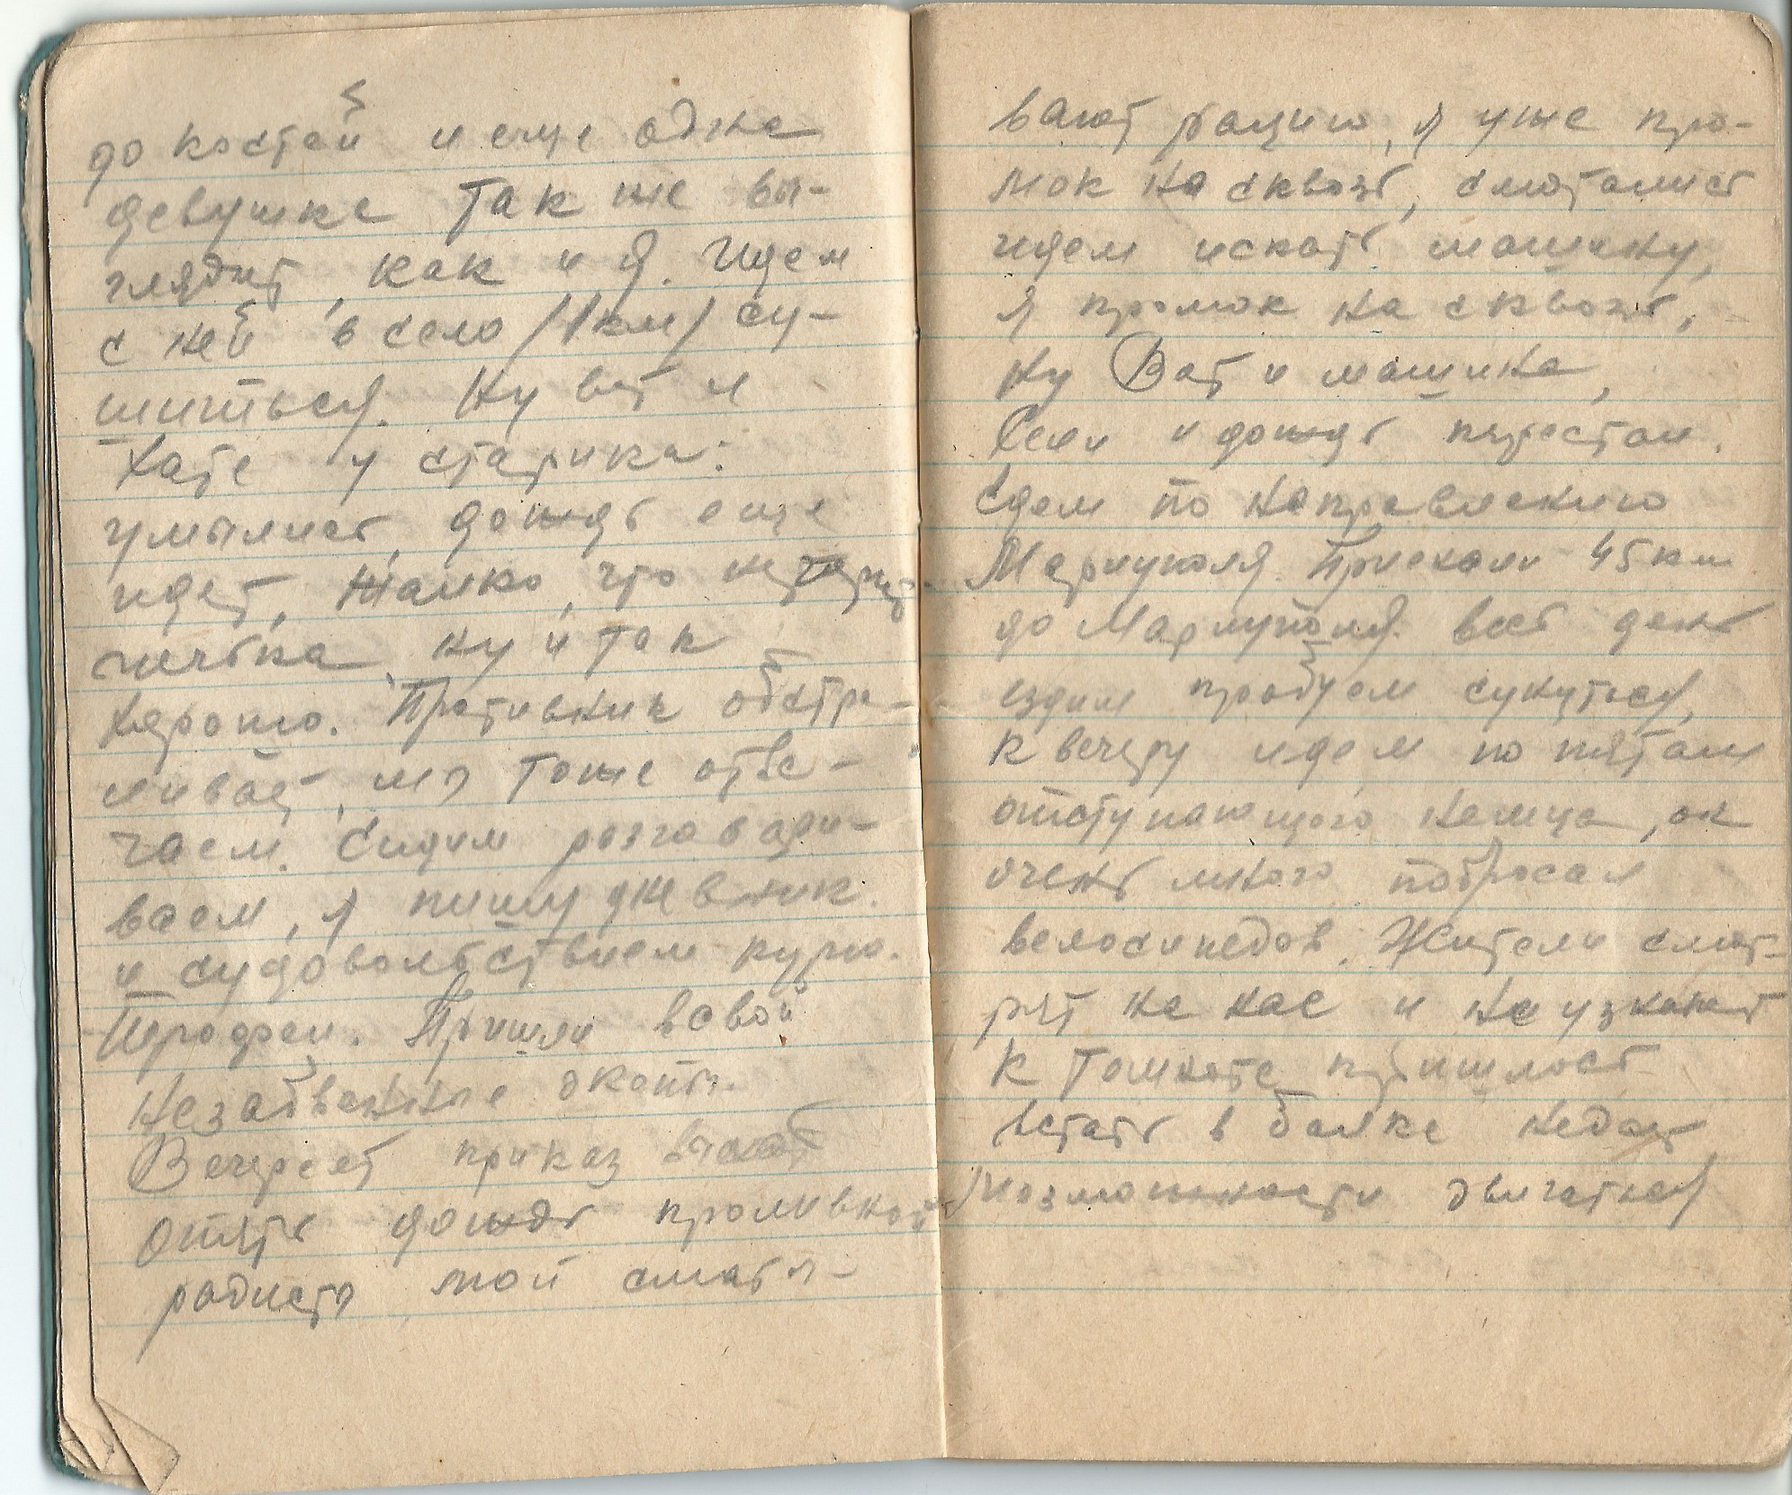 до костей и еще одна
девушка так же вы-
глядит, как и я. Идем
с ней в село /1 км/ су-
шиться. Ну вот и
хате у старика.
умылись, дождь еще
идет, жалко, что нет
ну и так
хорошо. Противник обстре-
ливает, мы тоже отве-
чаем. Сидим розговари-
ваем, я пишу дневник.
и судовольствием курю.
Пришли всвои
незабвенные окопы.
Вечереет приказ
опять дождь проливной
радисты мои сматы-
вают рацию, я уже про-
мок на сквозь, смотались
идем искать машину,
я промок на сквозь,
ну Вот и машина,
Сели и дождь перестал.
Едем по направлению
Мариуполя. Приехали 45 км
до Мариуполя. весь день
ездим пробуем сунуться,
к вечеру идем по пятам
отступающего немца, он
очень много побросал
велосипедов. Жители смот-
рят на нас и не узнают
к Томноте пришлось
встать в балке недают
возможности двигаться